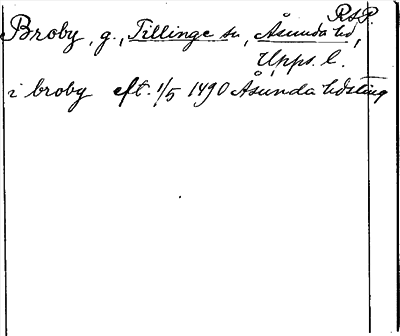 R.S.P.
Broby, g., Tillinge sn, Åsunda hd,
Upps. l.
i broby eft. 1/5 1490 Åsunda hdsting